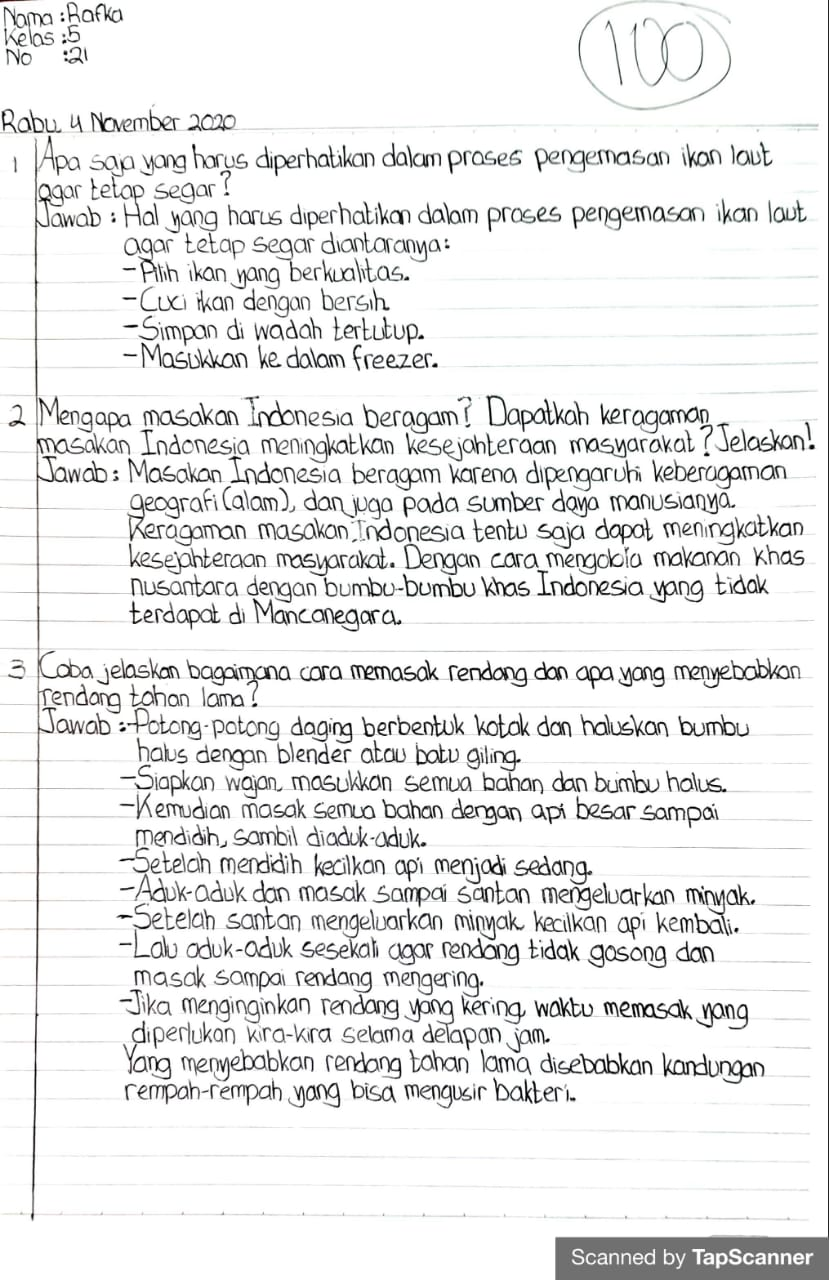 Nama : Rafka
Kelas : 5
No : 21
100
Rabu, 4 November 2020
1 Apa saja yang harus diperhatikan dalam proses pengemasan ikan laut
agar tetap segar?
Jawab : Hal yang harus diperhatikan dalam proses pengemasan ikan laut
agar tetap segar diantaranya:
- Pilih ikan yang berkualitas.
- Cuci ikan dengan bersih
- Simpan di wadah tertutup.
- Masukkan ke dalam freezer.
2 Mengapa masakan Indonesia beragam? Dapatkah keragaman
masakan Indonesia meningkatkan kesejahteraan masyarakat? Jelaskan!
Jawab : Masakan Indonesia beragam karena dipengaruhi keberagaman
geografi (alam), dan juga pada sumber daya manusianya.
Keragaman masakan Indonesia tentu saja dapat meningkatkan
kesejahteraan masyarakat. Dengan cara mengobla makanan khas
nusantara dengan bumbu-bumbu khas Indonesia yang tidak
terdapat di Mancanegara.
3 Coba jelaskan bagaimana cara memasak rendang dan apa yang menyebabkan
rendang tahan lama?
Jawab : - Potong-potong daging berbentuk kotak dan haluskan bumbu
halus dengan blender atau batu giling.
- Siapkan wajan, masukkan semua bahan dan bumbu halus.
- Kemudian masak semua bahan dengan api besar sampai
mendidih, sambil diaduk-aduk.
- Setelah mendidih kecilkan api menjadi sedang.
- Aduk-aduk dan masak sampai santan mengeluarkan minyak.
- Setelah santan mengeluarkan minyak, kecilkan api kembali.
- Lalu aduk-aduk sesekali agar rendang tidak gosong dan
masak sampai rendang mengering.
- Jika menginginkan rendang yang kering, waktu memasak yang
diperlukan kira-kira selama delapan jam.
Yang menyebabkan rendang tahan lama disebabkan kandungan
rempah-rempah yang bisa mengusir bakteri.
Scanned by TapScanner